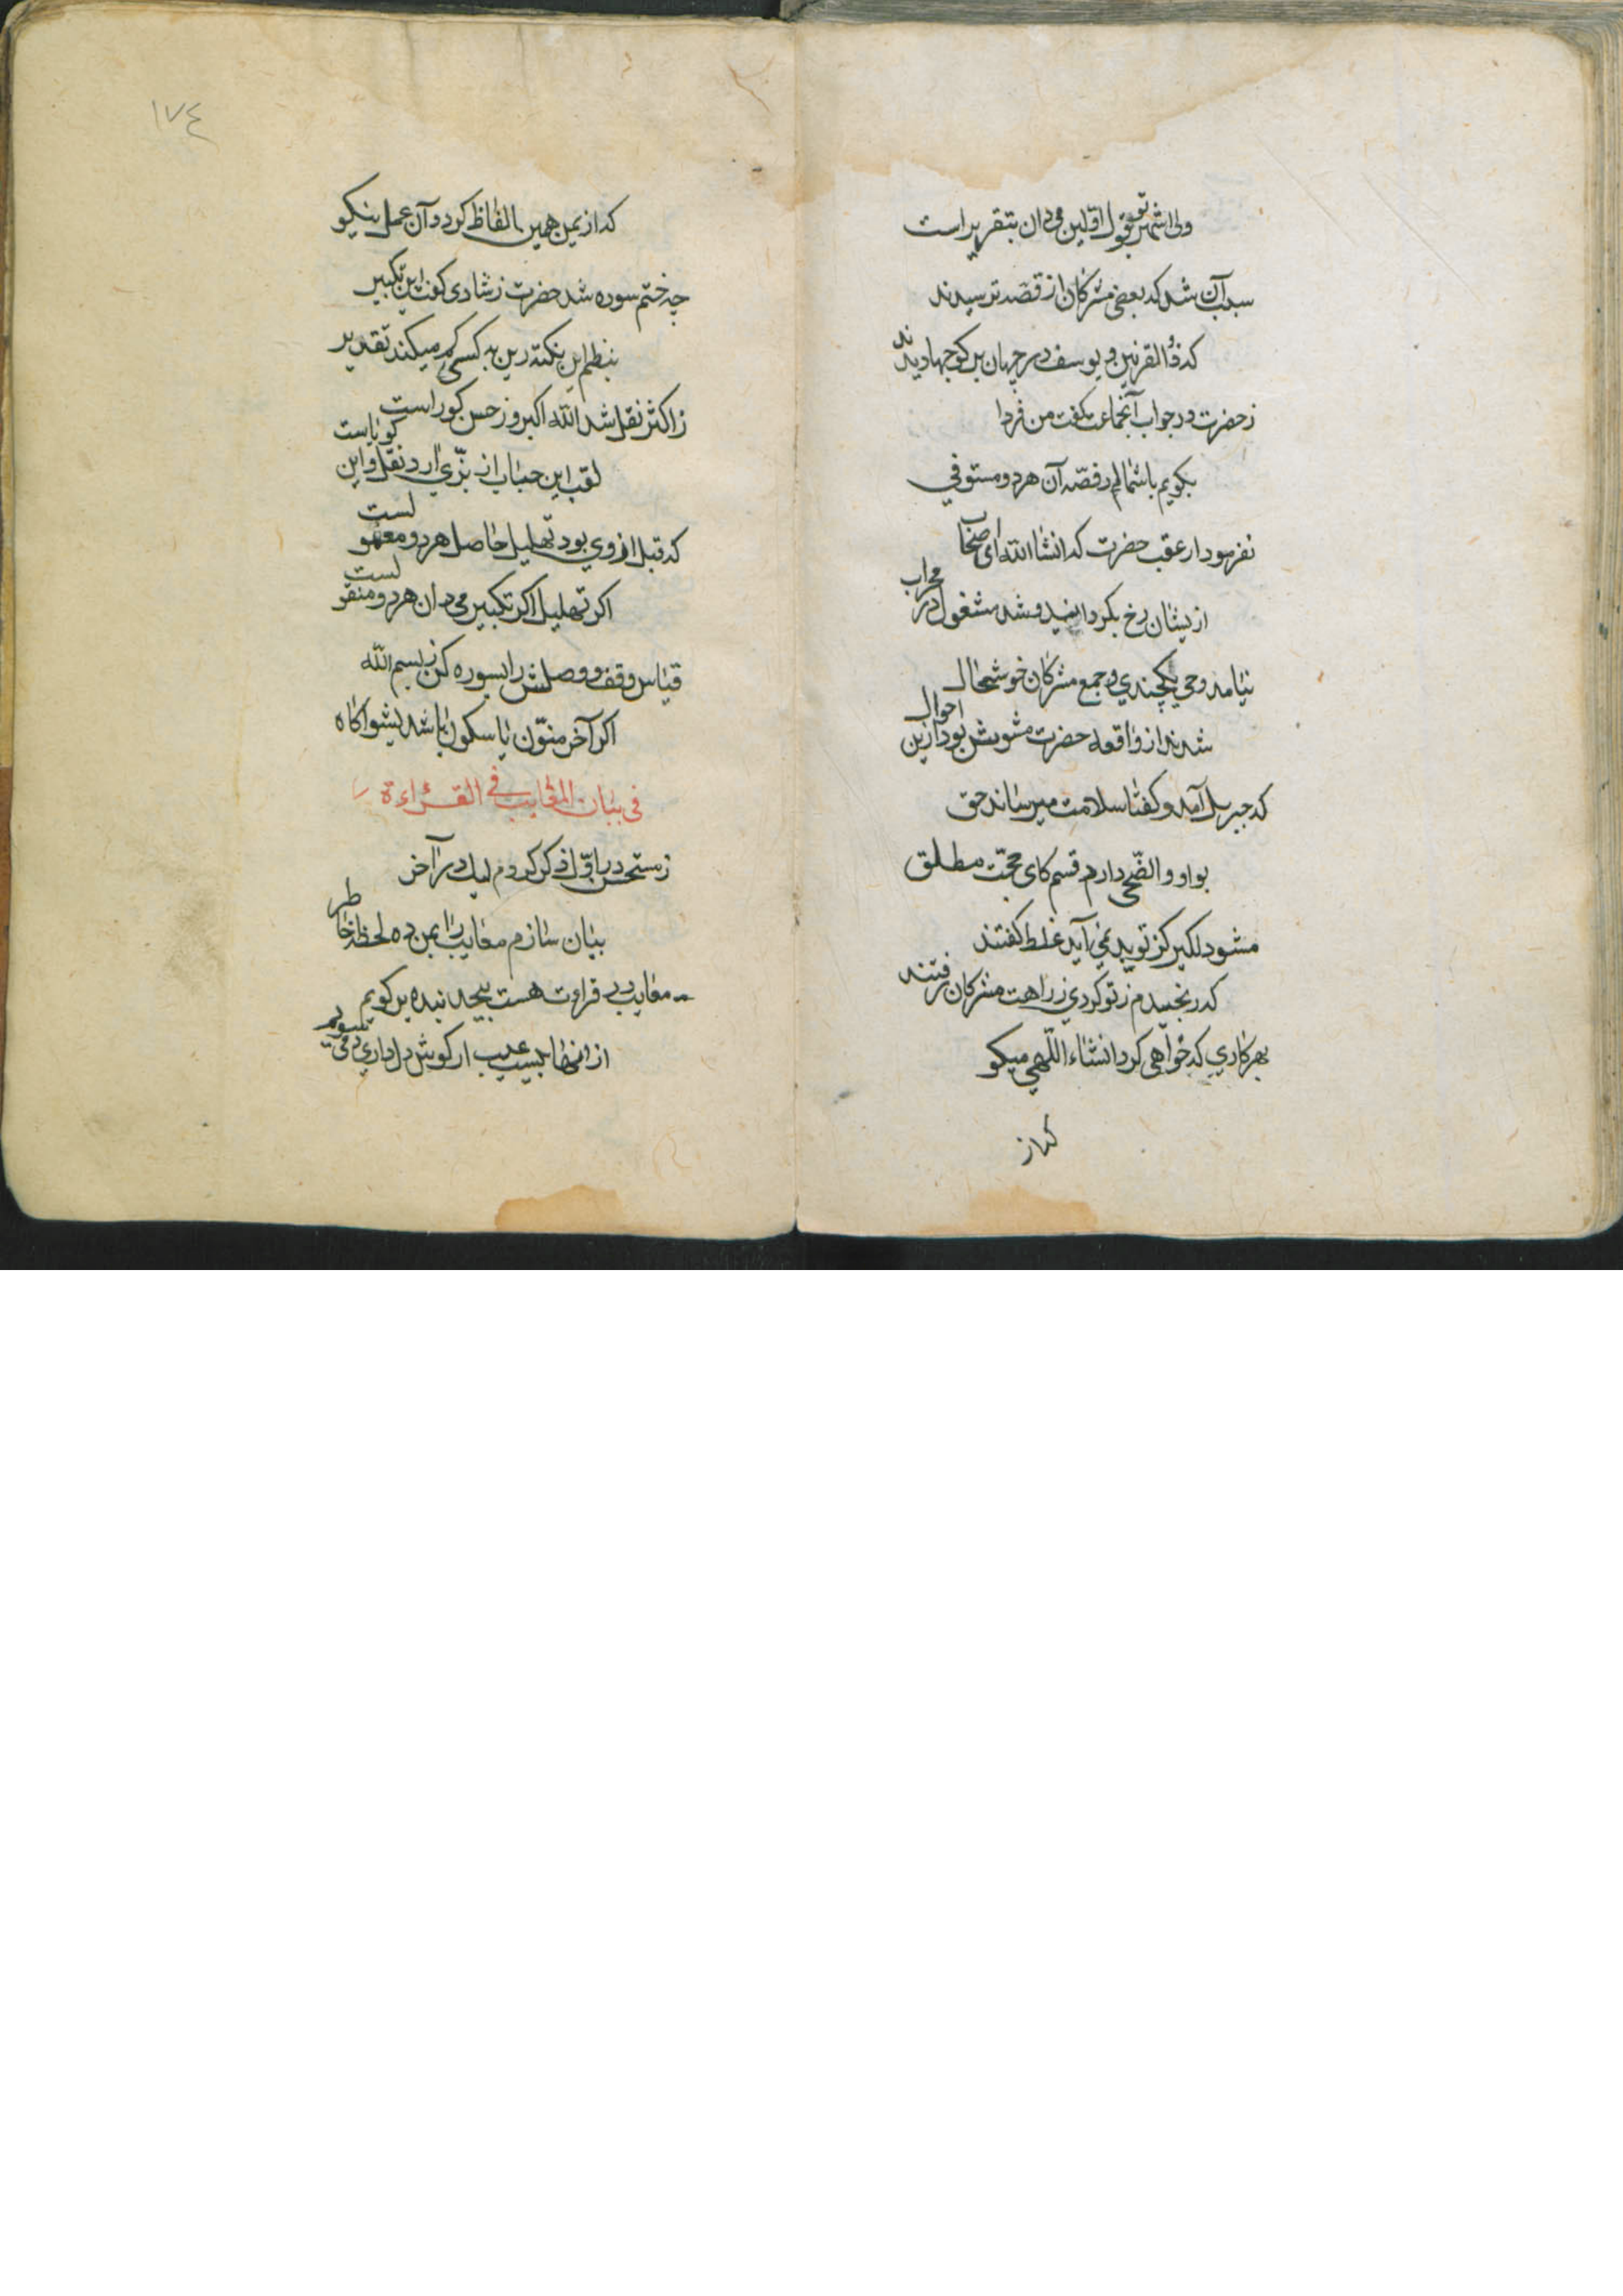 ولی اشهر تو قول اولین می‌دان بتقریر است
سبب آن شد که بعضی مشرکان از قصه ترسیدند
که ذوالقرنین و یوسف در جهان بر کو جها دیدند
ز حضرت در جواب آنجماعت گفت من فردا
بگویم با شما قصه آن هر دو مستوفی
نفرمود از عقب حضرت که انشا الله ای اصحاب
ازیشان رخ بگردانید و شد مشغول در محراب
نیامد وحی یکچندی و جمع مشرکان خوشحال
شدند از واقعه حضرت مشوش بود ازین احوال
که جبریل آمد و گفتا سلامت میرساند حق
بواو والضحی دارم قسم کای حجت مطلق
مشو دلگیر کز تو بد نمی آید غلط گفتند
که رنجیدم ز تو کردی ز راهت مشرکان رفتند
بهر کاری که خواهی کرد انشاء اللهی میگو
که از
١٧٤
که از یمن همین الفاظ کردد آن عمل نیکو
چه ختم سوره شد حضرت ز شادی گفت این تکبیر
بنظم این نکته رین به کسی کم میکند تقدیر
ز اکثر نقل شد الله اکبر و ز حسن کوراست
لقب ابن حباب از بزی ارد نقل و این کویاست
که قبل از وی بود تهلیل حاصل هر دو معمولست
اگر تهلیل اگر تکبیر می‌دان هر دو منقولست
قیاس وقف و وصلش را بسوره کن ز بسم الله
اگر آخر منون یا سکون باشد بشو آگاه
فی بیان المعایب فی القراءة
ز مستحسن در اول ذکر کردم لیک در آخر
بیان سازم معایب را بمن ده لحظه خاطر
معایب در قراءت هست بیحد نبده بر گویم
از انها بیست عیب ار گوش دل داری دمی سویم